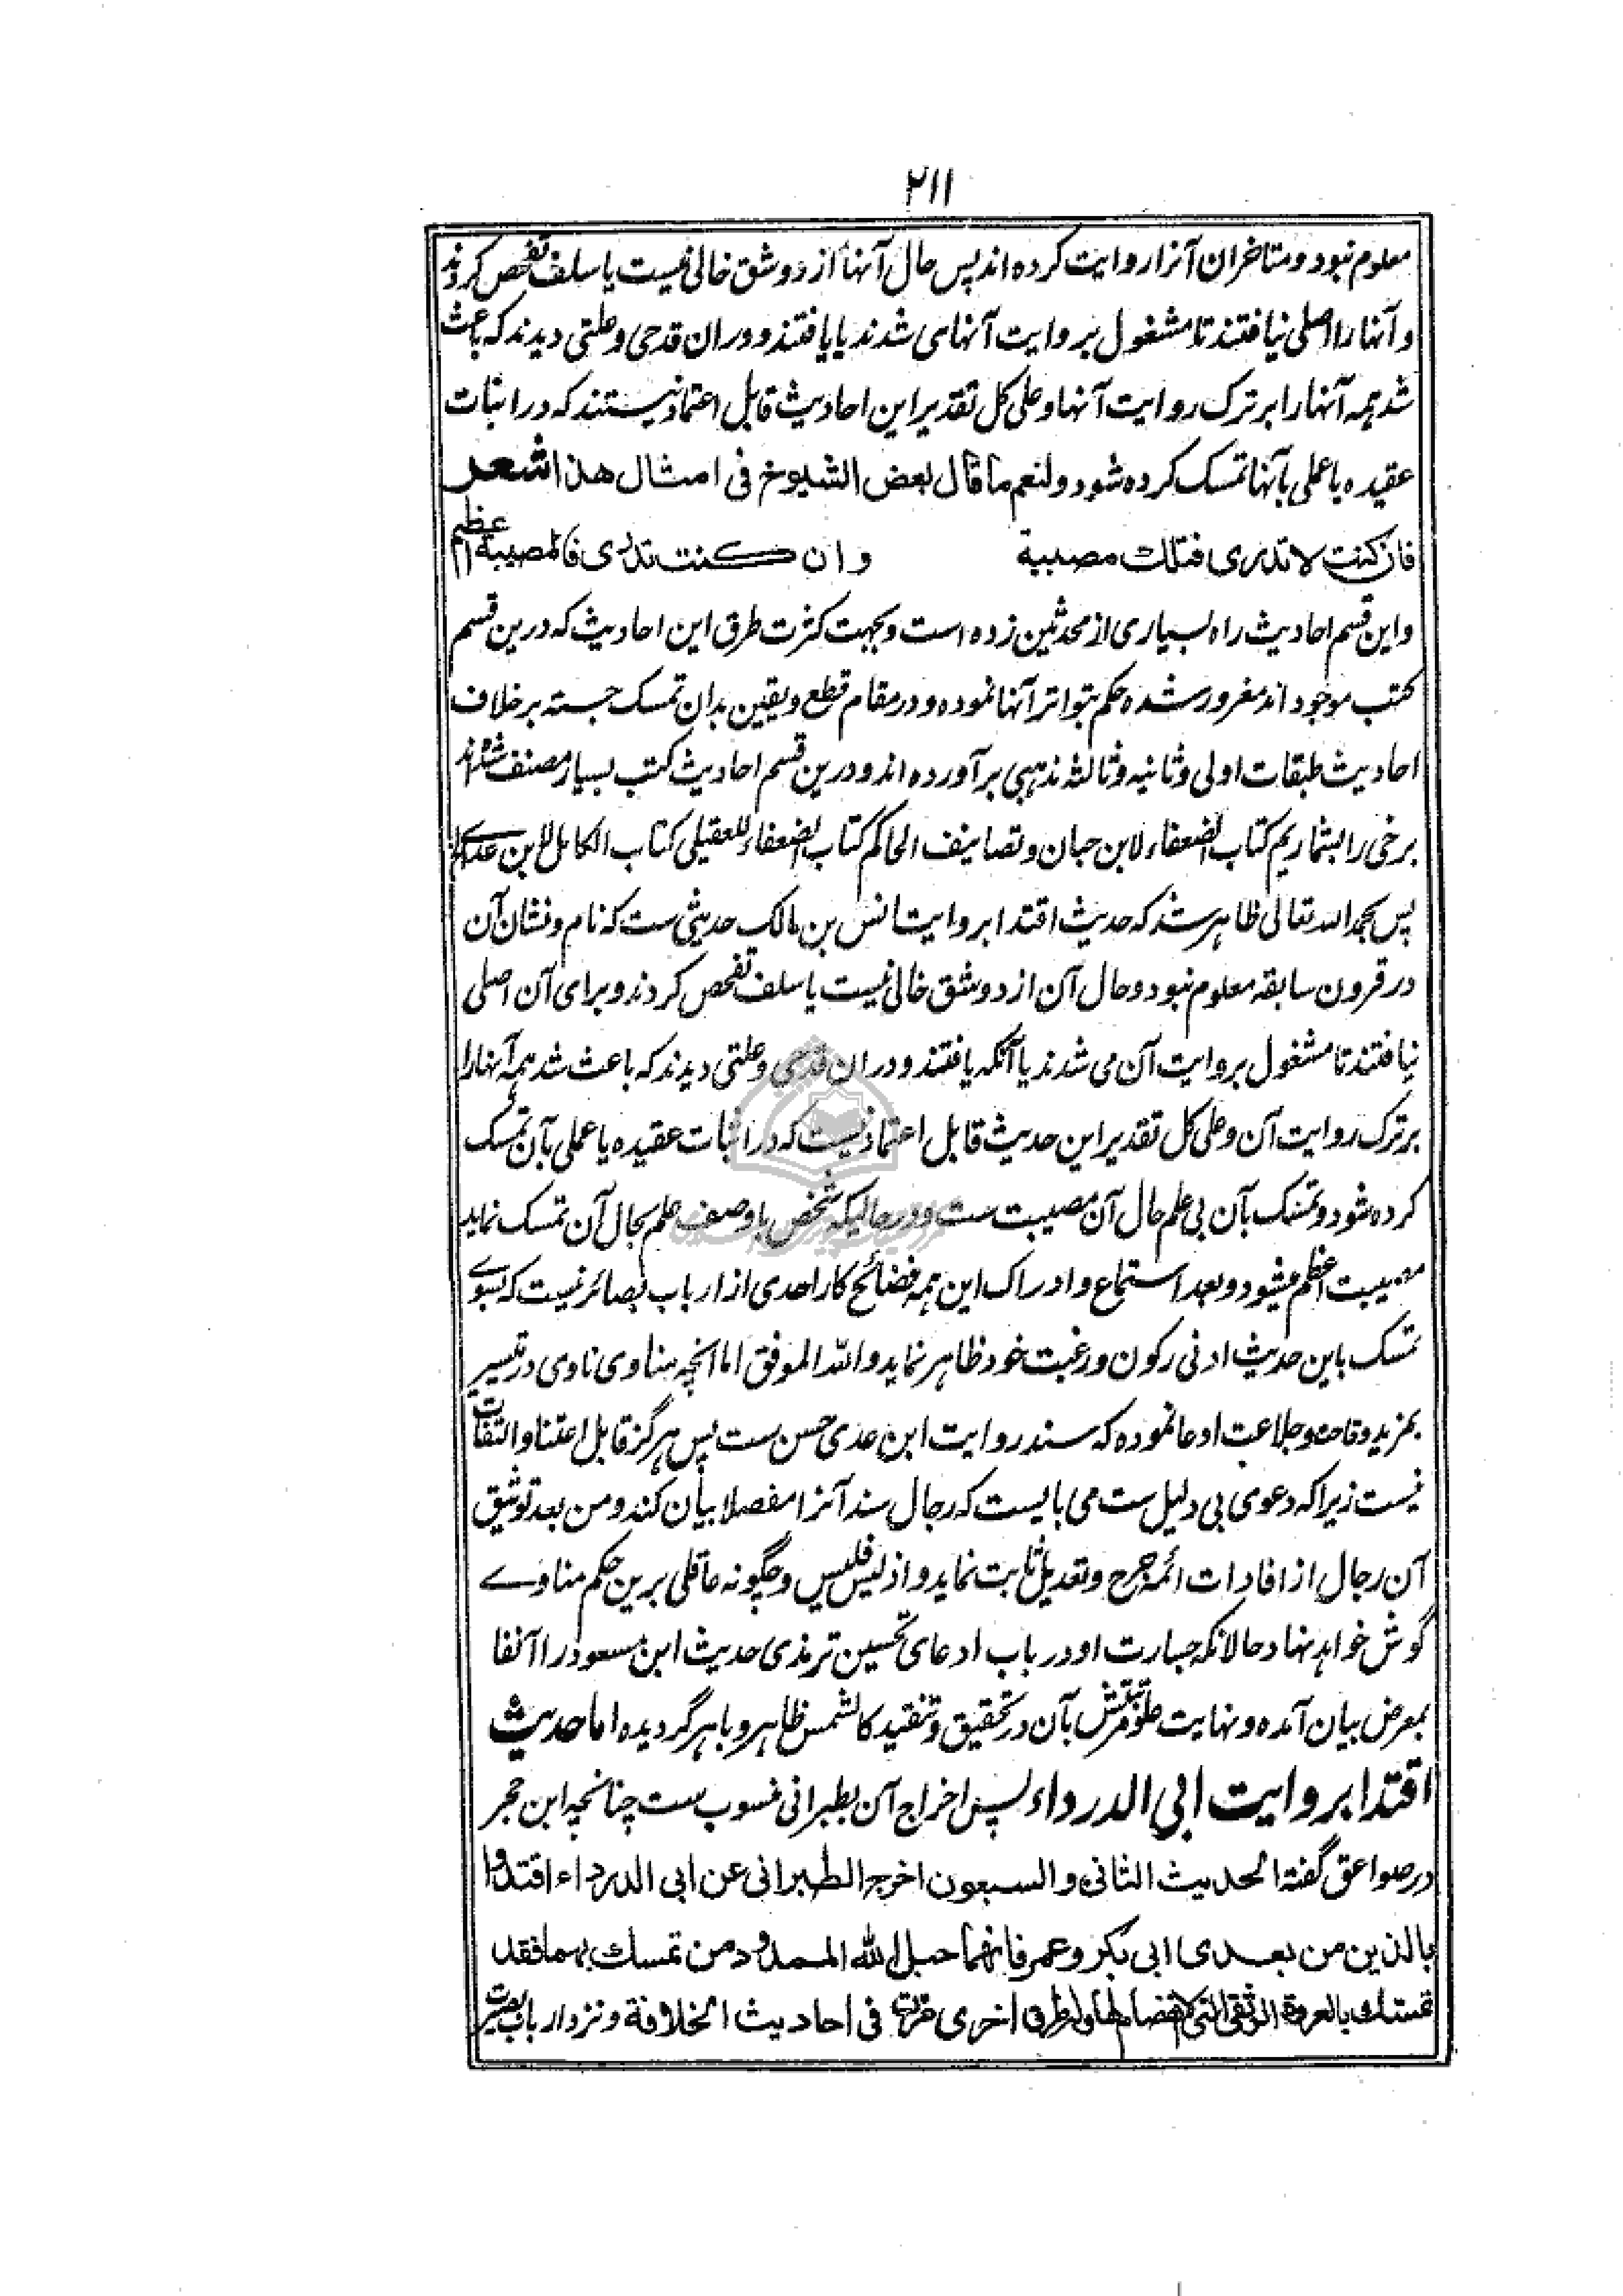 ۲۱۱
معلوم نبود و متاخران آنرا روایت کرده اند پس حال آنها از دو شق خالی نیست یا سلف تفحص کردند
و آنها را اصلی نیافتند تا مشغول بروایت آنهای شدند یا یافتند و دران قدحی و علتی دیدند که باعث
شد همه آنها را بر ترک روایت آنها و علی کل تقدیر این احادیث قابل اعتماد نیستند که در اثبات
عقیده یا عملی بآنها تمسک کرده شود و لنعم ما قال بعض الشیوخ فی امثال هذا شعر
فان کنت لا تدری فتلك مصیبة وان كنت تدری فالمصیبة اعظم
و این قسم احادیث راه بسیاری از محدثین زده است و بجهت کثرت طرق این احادیث که درین قسم
کتب موجود اند مغرور شده حکم بتواتر آنها نموده و در مقام قطع و یقین بدان تمسک جسته بر خلاف
احادیث طبقات اولی و ثانیه و ثالثه مذهبی برآورده اند و درین قسم احادیث کتب بسیار مصنف شده اند
برخی را بشماریم کتاب الضعفاء لابن حبان و تصانیف الحاکم کتاب الضعفاء للعقیلی کتاب الکامل لابن عدی الخ
پس بحمد الله تعالی ظاهر شد که حدیث اقتدا بروایت انس بن مالک حدیثی ست که نام و نشان آن
در قرون سابقه معلوم نبود و حال آن از دو شق خالی نیست یا سلف تفحص کردند و برای آن اصلی
نیافتند تا مشغول بروایت آن می شدند یا آنکه یافتند و دران قدحی و علتی دیدند که باعث شد همه آنها را
بر ترک روایت آن و علی کل تقدیر این حدیث قابل اعتماد نیست که در اثبات عقیده یا عملی بآن تمسک
کرده شود و تمسک بآن بی علم حال آن مصیبت ست و در حالیکه شخص با وصف علم بحال آن تمسک نماید
مصیبت اعظم میشود و بعد استماع و ادراک این همه فضائح کار احدی از ارباب بصائر نیست که بسوے
تمسک باین حدیث ادنی رکون و رغبت خود ظاهر نماید و الله الموفق اما آنچه مناوی ناوی در تیسیر
بمزید وقاحت و جلاعت ادعا نموده که سند روایت ابن عدی حسن ست پس هرگز قابل اعتنا و التفات
نیست زیرا که دعوی بی دلیل ست می بایست که رجال سند آنرا مفصلا بیان کند و من بعد توثیق
آن رجال از افادات ائمه جرح و تعدیل ثابت نماید و اذ لیس فلیس و چگونه عاقلی برین حکم مناوے
گوش خواهد نهاد حالانکه جسارت او در باب ادعای تحسین ترمذی حدیث ابن مسعود را آنفا
بمعرض بیان آمده و نهایت بآن در تحقیق و تنقید کالشمس ظاهر و باهر گردیده اما حدیث
اقتدا بروایت ابی الدرداء پس اخراج آن بطبرانی منسوب ست چنانچه ابن حجر
در صواعق گفته الحدیث الثانی و السبعون اخرج الطبرانی عن ابی الدرداء اقتدوا
بالذین من بعدی ابی بکر و عمر فانهما حبل الله الممدود من تمسك بهما فقد
تمسك بالعروة الوثقی التی لا انفصام لها وله طرق اخری مرت فی احادیث الخلافة و نزد ارباب بصیرت